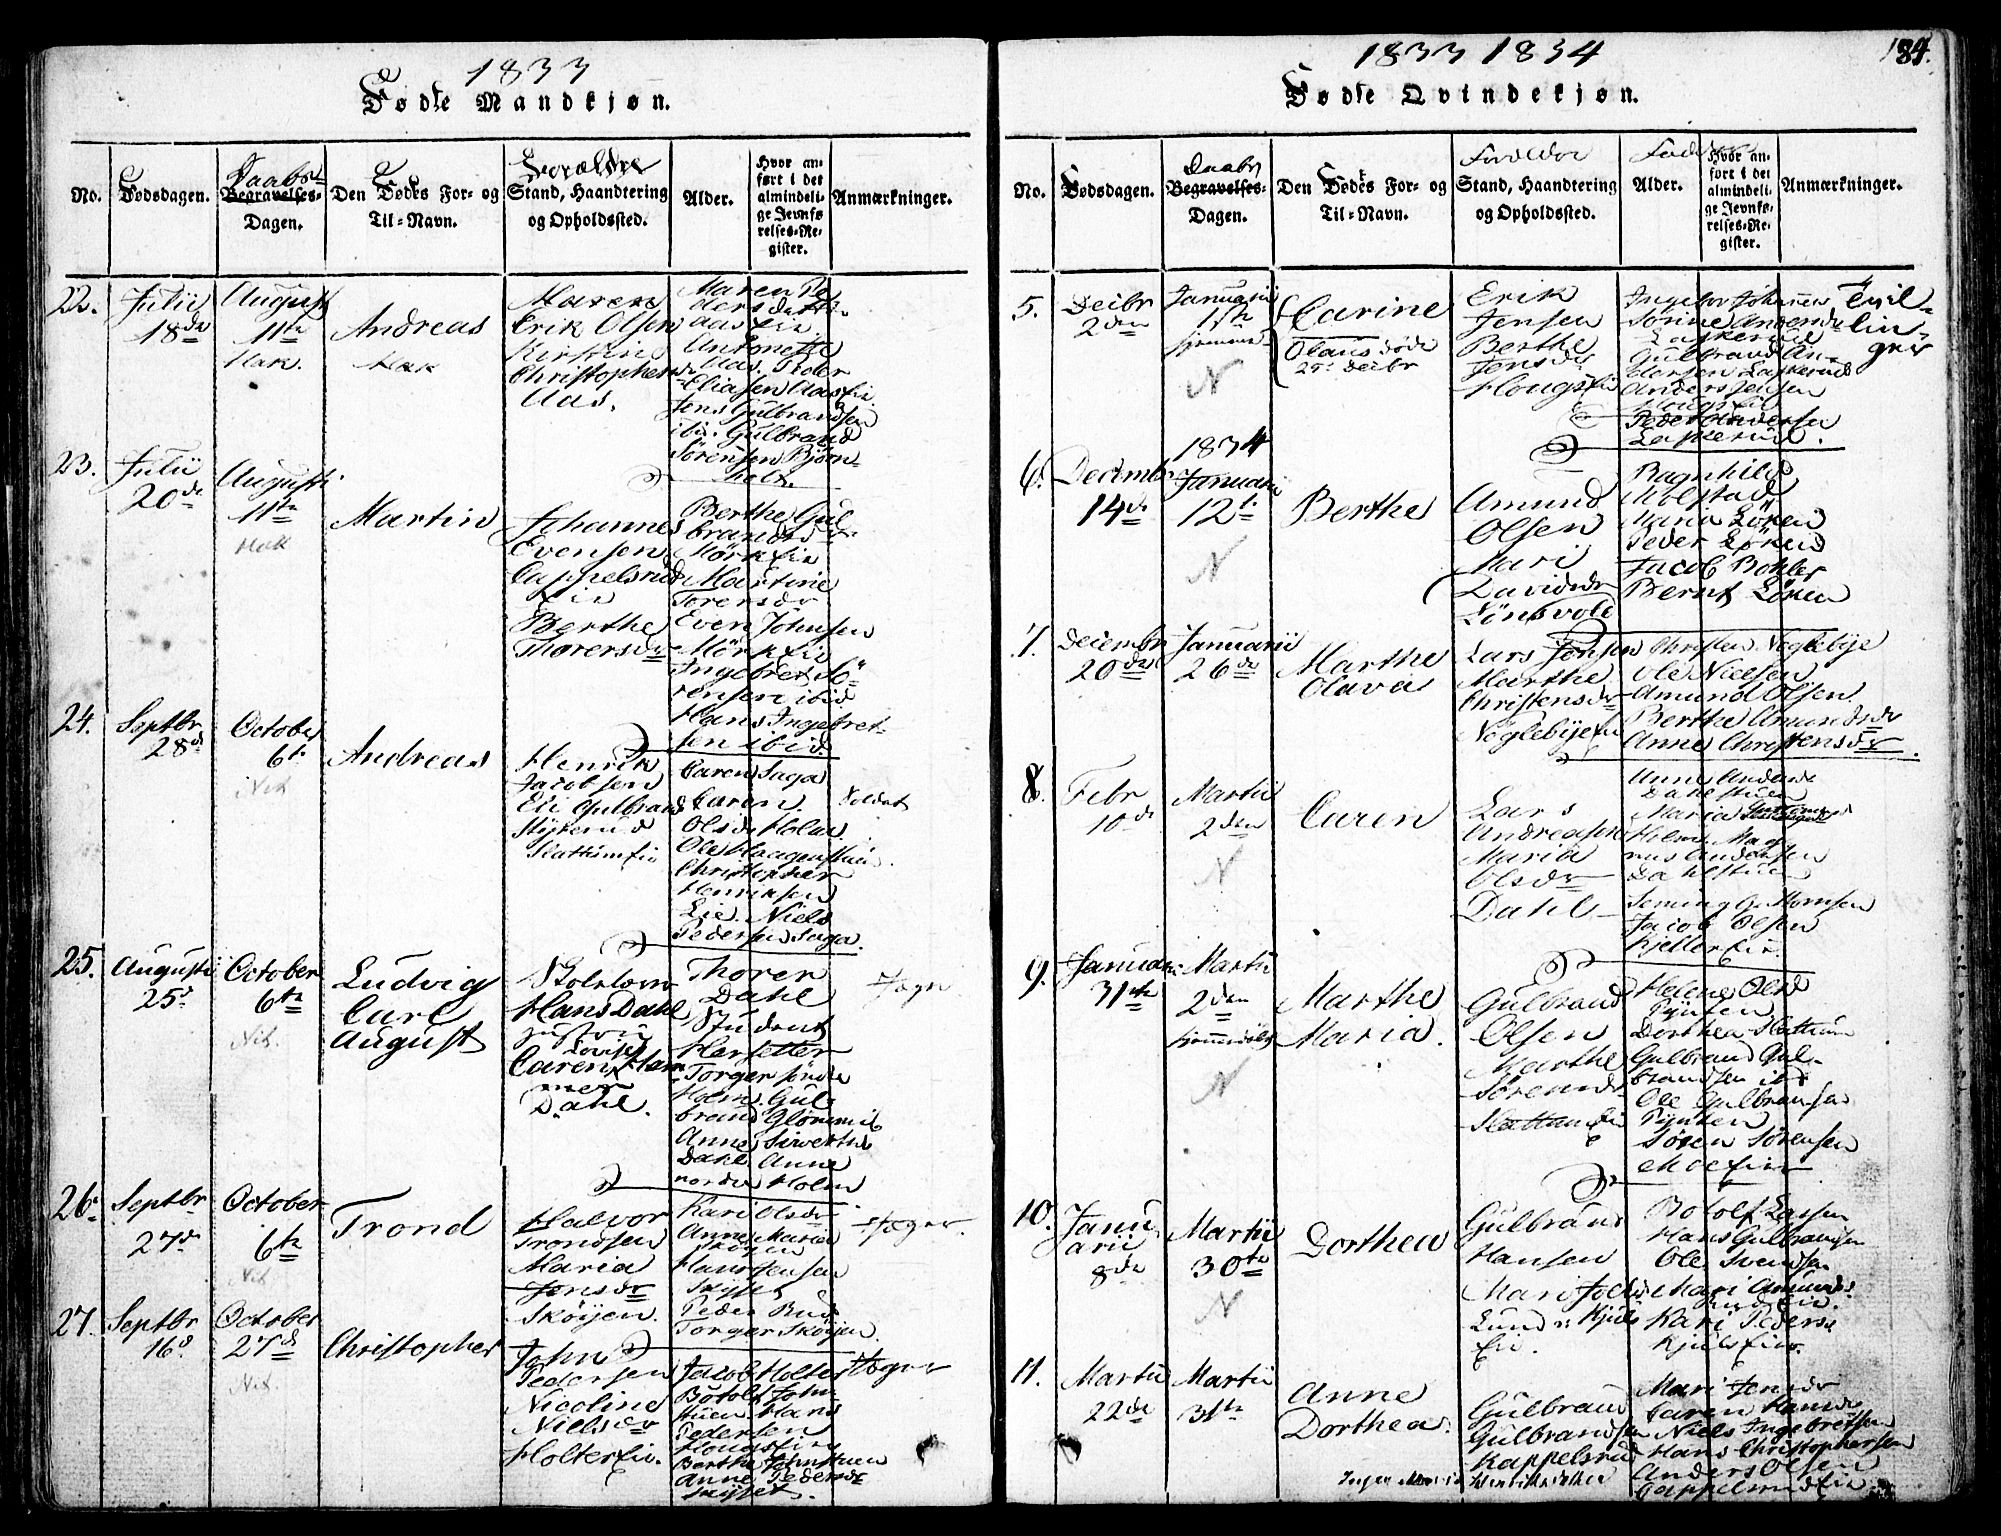 1833
Födte Mandkjøn.
No.
Fødsdagen.
Daabs-
Begravelses-
Dagen.
Den Dødes For- og
Til-Navn.
Forældre
Stand, Haandtering
og Opholdssted.
Alder.
Hvor an-
ført i det
almindeli-
ge Jevnfø-
relses-Re-
gister.
Anmærkninger.
22.
Julii
18de
August
11te
Hak.
Andreas
Hak
Maren
Erik Olsen
Kirstine
Christophersd
Aas.
Maren Pe
dersdatter
Aas eie
Antonette
Aas. Peder
Eliasen Aas eie.
Jens Gulbrandsen
ibid. Gulbrand
Sørensen Bjørn-
holt.
23.
Julii
20de
Augusti
11te
Hak
Martin
Johannes
Evensen
Cappelsrud
Eie
Berthe
Thorersdr
Berthe Gul
brandsdr
Mörk Eie
Martine
Torersdr
Even Johnsen
Mörk Eie
Ingebret Sö
rensen ibid
Hans Ingebret-
sen ibid.
24.
Septbr
28de
October
6te
Nit
Andreas
Henrik
Jacobsen
Eli Gulbrands
Slattum Eie
Caren Saga
Caren
Olsdr Holm
Ole Haagenstuen.
Christopher
Henriksen
Lie. Niels
Pedersen Saga.
Soldat
25.
Augusti
25de
October
6te
Nit.
Ludvig
Carl
August
Hans Dahl
Lovise
Caren Ham
mer
Dahl.
Thorer
Dahl
Student
Harsetter
Torger søndre
Holm. Gul-
brand Glømmi
Anne Sivertsd
Dahl Anne
nordre Holm
26.
Septbr
27de
October
6te
Nit.
Trond
Halvor
Trondsen
Maria
Jensdr
Skøijen.
Kari Olsdr
Anne Maria
Skøyen
Hans Jensen
Peder Rud
Torger Skøijen.
27.
Septbr
16de
October
27de
Nit.
Christopher
John
Pedersen
Nicoline
Nielsdr
Holter Eie.
Jacob Holter
Botolf John
stuen Hans
Pedersen
Hougs Eie
Berthe Johnstuen
Anne Pedersdr
1833 1834
184.
Födte Qvindekjøn.
No.
Fødsdagen.
Daabs
Begravelses-
Dagen.
Den Dødes For- og
Til-Navn.
Forældre
Stand, Haandtering
og Opholdssted.
Alder.
Hvor an-
ført i det
almindeli-
ge Jevnfø-
relses-Re-
gister.
Anmærkninger.
5.
Decbr
2den
Januarii
1ste
hjemmed
N
Carine
Olaus døde
25de Decbr
Erik
Jensen
Berthe
Jensdr
Hougs Eie
Ingebor Johannes
Sørine Andersdr
Laskerud
Gulbrand An-
dersen Laskerud
Anders Jensen
Hougs Eie
Peder Andersen
Laskerud.
Tvil-
lin-
ger
6.
Decembr
14de
1834
Januarii
12te
N
Berthe
Amund
Olsen
Mari
Davidsdr
Nönsvold
Ragnhild
Molstad
Maria Löken
Peder Löken
Jacob Bohler
Bernt Löken
7.
Decembr
20de
Januarii
26de
Marthe
Olava
Lars Jensen
Marthe
Christensdr
Nöglebije Eie
Christen Nöglebije
Ole Nielsen
Amund Olsen
Berthe Amundsdr
Anne Christensdr.
8.
Febr
10de
Martii
2den
N
Caren
Lars
Andreasen
Maria
Olsdr
Dahl
Anne Andersd
Dahlstuen
Maria
Holm Mag
nus Andersen
Dahlstuen
Jacob Olsen
Kjeller Eie.
9.
Januar
31te
Martii
2den
hjemmedøbt
N
Marthe
Maria.
Gulbrand
Olsen
Marthe
Sörensdr
Slattum Eie
Helene Olsd
Tynten
Dorthea Slattum
Gulbrand Gul-
brandsen ibid
Ole Gulbransen
Tynten
Sören Sörensen
Moe Eie
10.
Janu
arii
8de
Martii
30te
N
Dorthea
Gulbrand
Hansen
Mari Jo
Lund
Eie.
Botolf Larsen
Hans Gulbrandsen
Ole Svendsen
Mari Amunds
Kari Peders
Kjuls Eie.
11.
Martii
22de
Martii
31te
Anne
Dorthea.
Gulbrand
Gulbrandsen
Kappelsrud
Inger Marie
Mari Jensdr
Caren Hansdr
Niels Ingebretsen
Hans Christophersen
Anders Olsen
Cappelsrud Eie